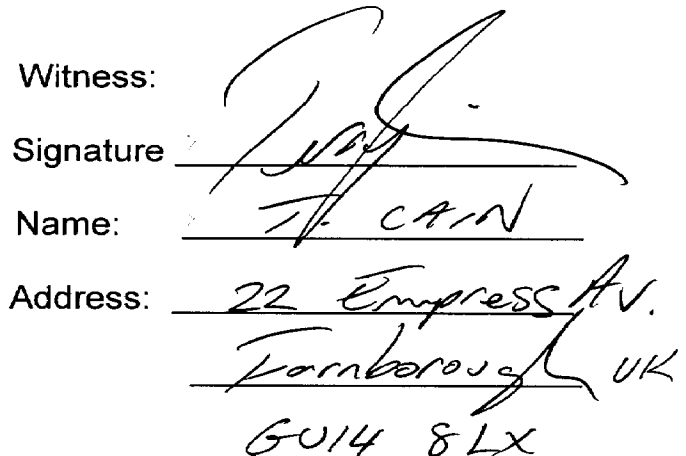 Witness:
Signature
Name: T. CAIN
Address: 22 Empress Av.
Farnborough UK
GU14 8LX